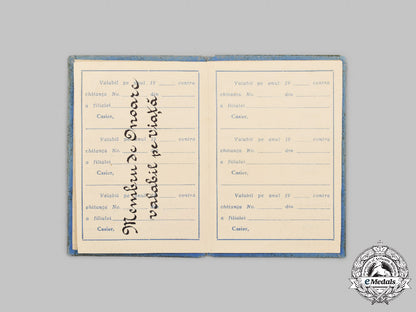 Valabil pe anul 19 contra
chitanța No. din
a filialei
Casier,
Valabil pe anul 19 contra
chitanța No. din
a filialei
Casier,
Valabil pe anul 19 contra
chitanța No. din
a filialei
Casier,
Membru de Onoare
valabil pe Viață
Valabil pe anul 19 contra
chitanța No. din
a filialei
Casier,
Valabil pe anul 19 contra
chitanța No. din
a filialei
Casier,
Valabil pe anul 19 contra
chitanța No. din
a filialei
Casier,
eMedals